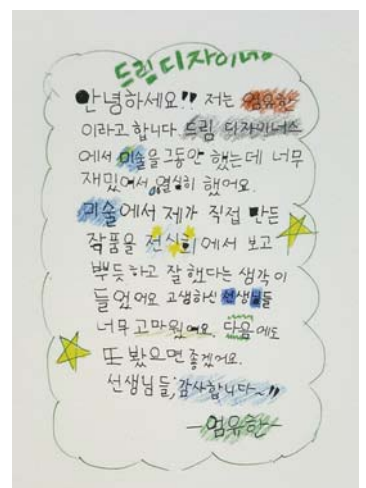 드림디자이너스
안녕하세요!! 저는 엄유한
이라고 합니다. 드림 디자이너스
에서 미술을 그동안 했는데 너무
재밌어서, 열심히 했어요.
미술에서 제가 직접 만든
작품을 전시회에서 보고
뿌듯하고 잘했다는 생각이
들었어요 고생하신 선생님들
너무 고마웠어요. 다음에도
또 봤으면 좋겠어요.
선생님들, 감사합니다~!!
-엄유한-